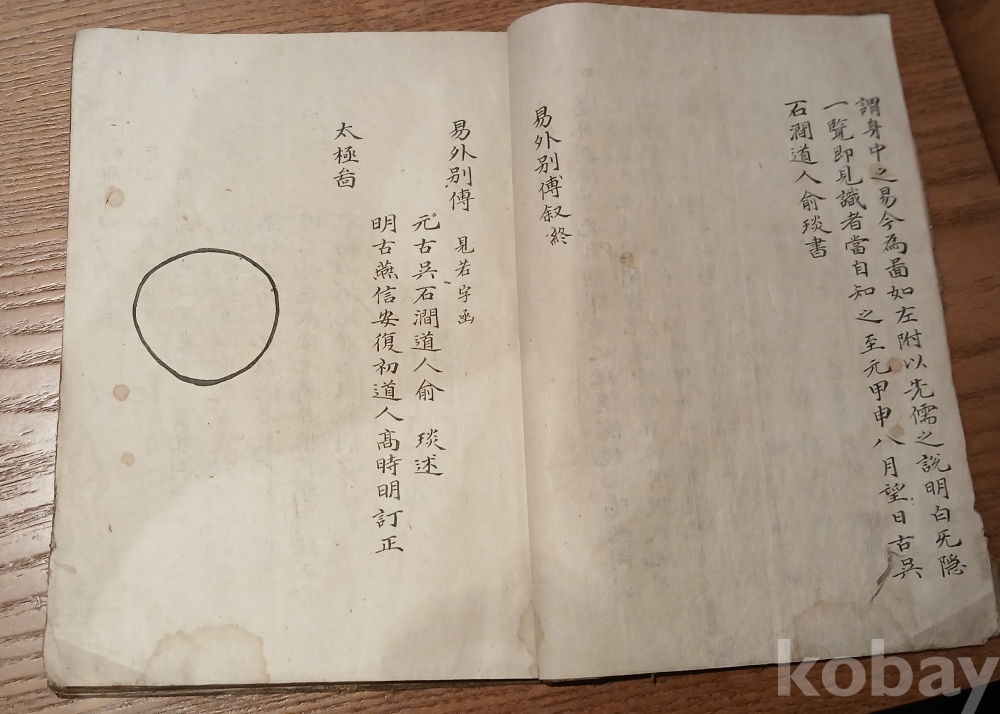 謂身中之易今為啚如左附以先儒之說明白旡隐
一覽即見識者當自知之至元甲申八月望日古吳
石澗道人俞琰書
易外别傳叙終
易外别傳 見若字函
元古吳石澗道人俞 琰述
明古燕信安復初道人高時明訂正
太極啚
kobay